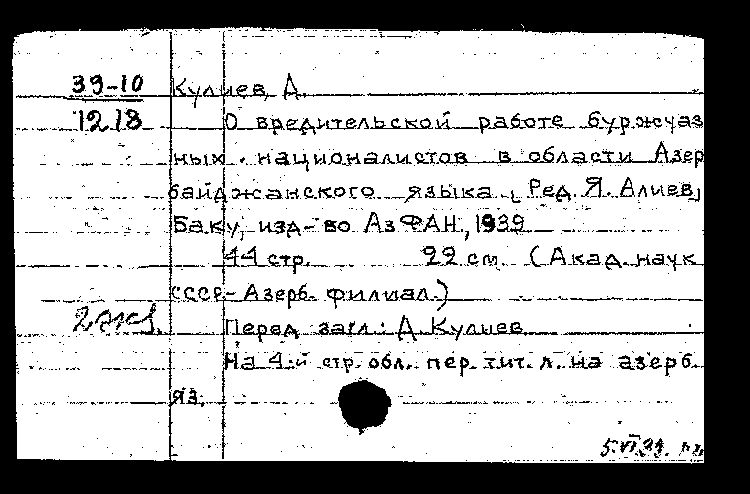 39-10 Кулиев, Д.
1218 О вредительской работе буржуаз
ных националистов в области Азер
байджанского языка [Ред. Я. Алиев]
Баку, изд-во АзФАН, 1939
44 стр. 22 см. (Акад. наук
СССР - Азерб. филиал.)
2 экз. Перед загл.: Д. Кулиев
На 4-й стр. обл. пер. тит. л. на азерб.
яз.
5.VI.39.